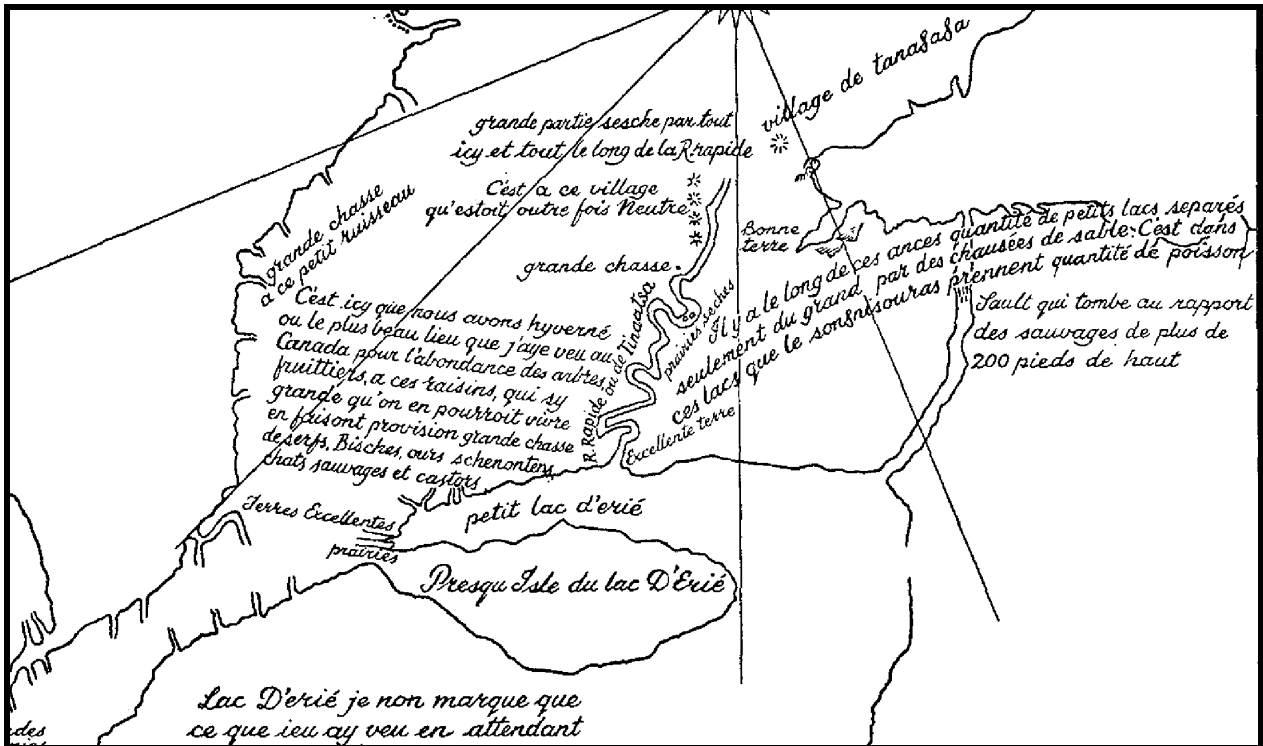 village de tanaȣaȣa
grande partie sesche par tout
icy et tout le long de la R. rapide
C'est a ce village
qu'estoit outre fois Neutre
grande chasse
a ce petit ruisseau
Bonne
terre
grande chasse.
Il y a le long de ces ances quantité de petits lacs separés
seulement du grand par des chausées de sable. C'est dans
ces lacs que le sonȣnisouras prennent quantité de poisson
Sault qui tombe au rapport
des sauvages de plus de
200 pieds de haut
C'est icy que nous avons hyverné
ou le plus beau lieu que j'aye veu au
Canada pour l'abondance des arbres,
fruittiers, a ces raisins, qui sy
grande qu'on en pourroit vivre
en faisont provision grande chasse
de serfs, Bisches, ours schenontens
chats sauvages et castors
R. Rapide ou de Tinaatsa
prairies seches
Excellente terre
Terres Excellentes
prairies
petit lac d'erié
Presqu Isle du lac D'Erié
Lac D'erié je non marque que
ce que ieu ay veu en attendant